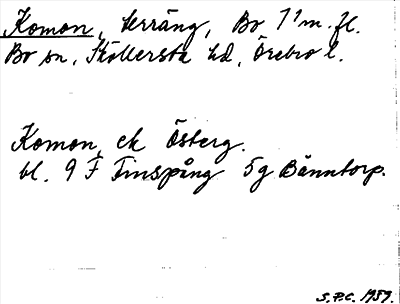 Komon, terräng, Bo 7¹ m. fl.
Bo sn, Sköllersta hd, Örebro l.
Komon, ek Österg.
bl. 9 F Finspång 5g Bänntorp.
S.P.C. 1959.